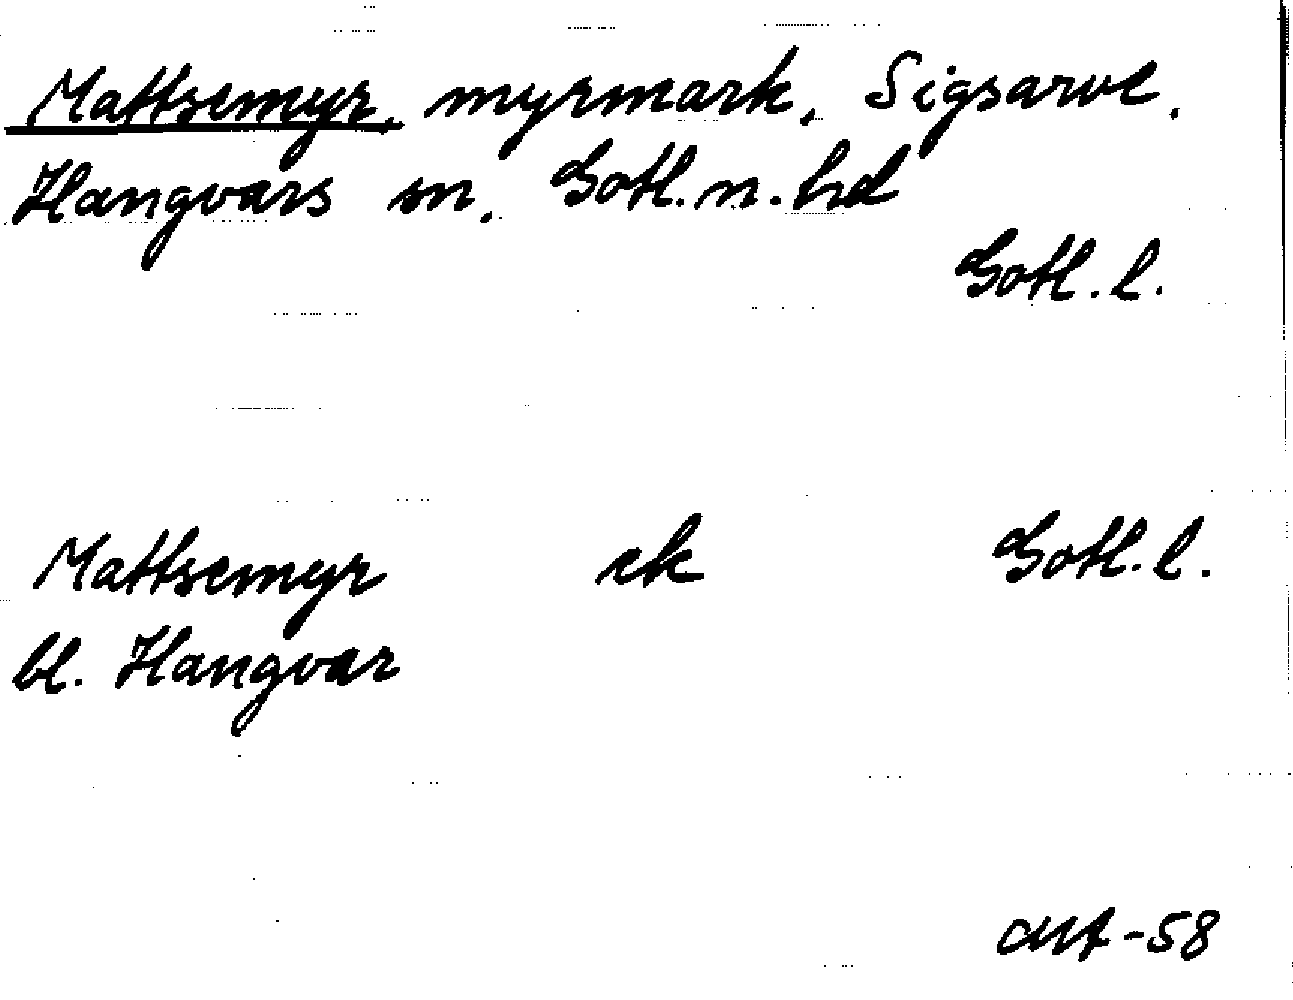 Mattsemyr, myrmark, Sigsarve,
Hangvars sn, Gotl. n. hd
Gotl. l.
Mattsemyr ek Gotl. l.
bl. Hangvar
-58